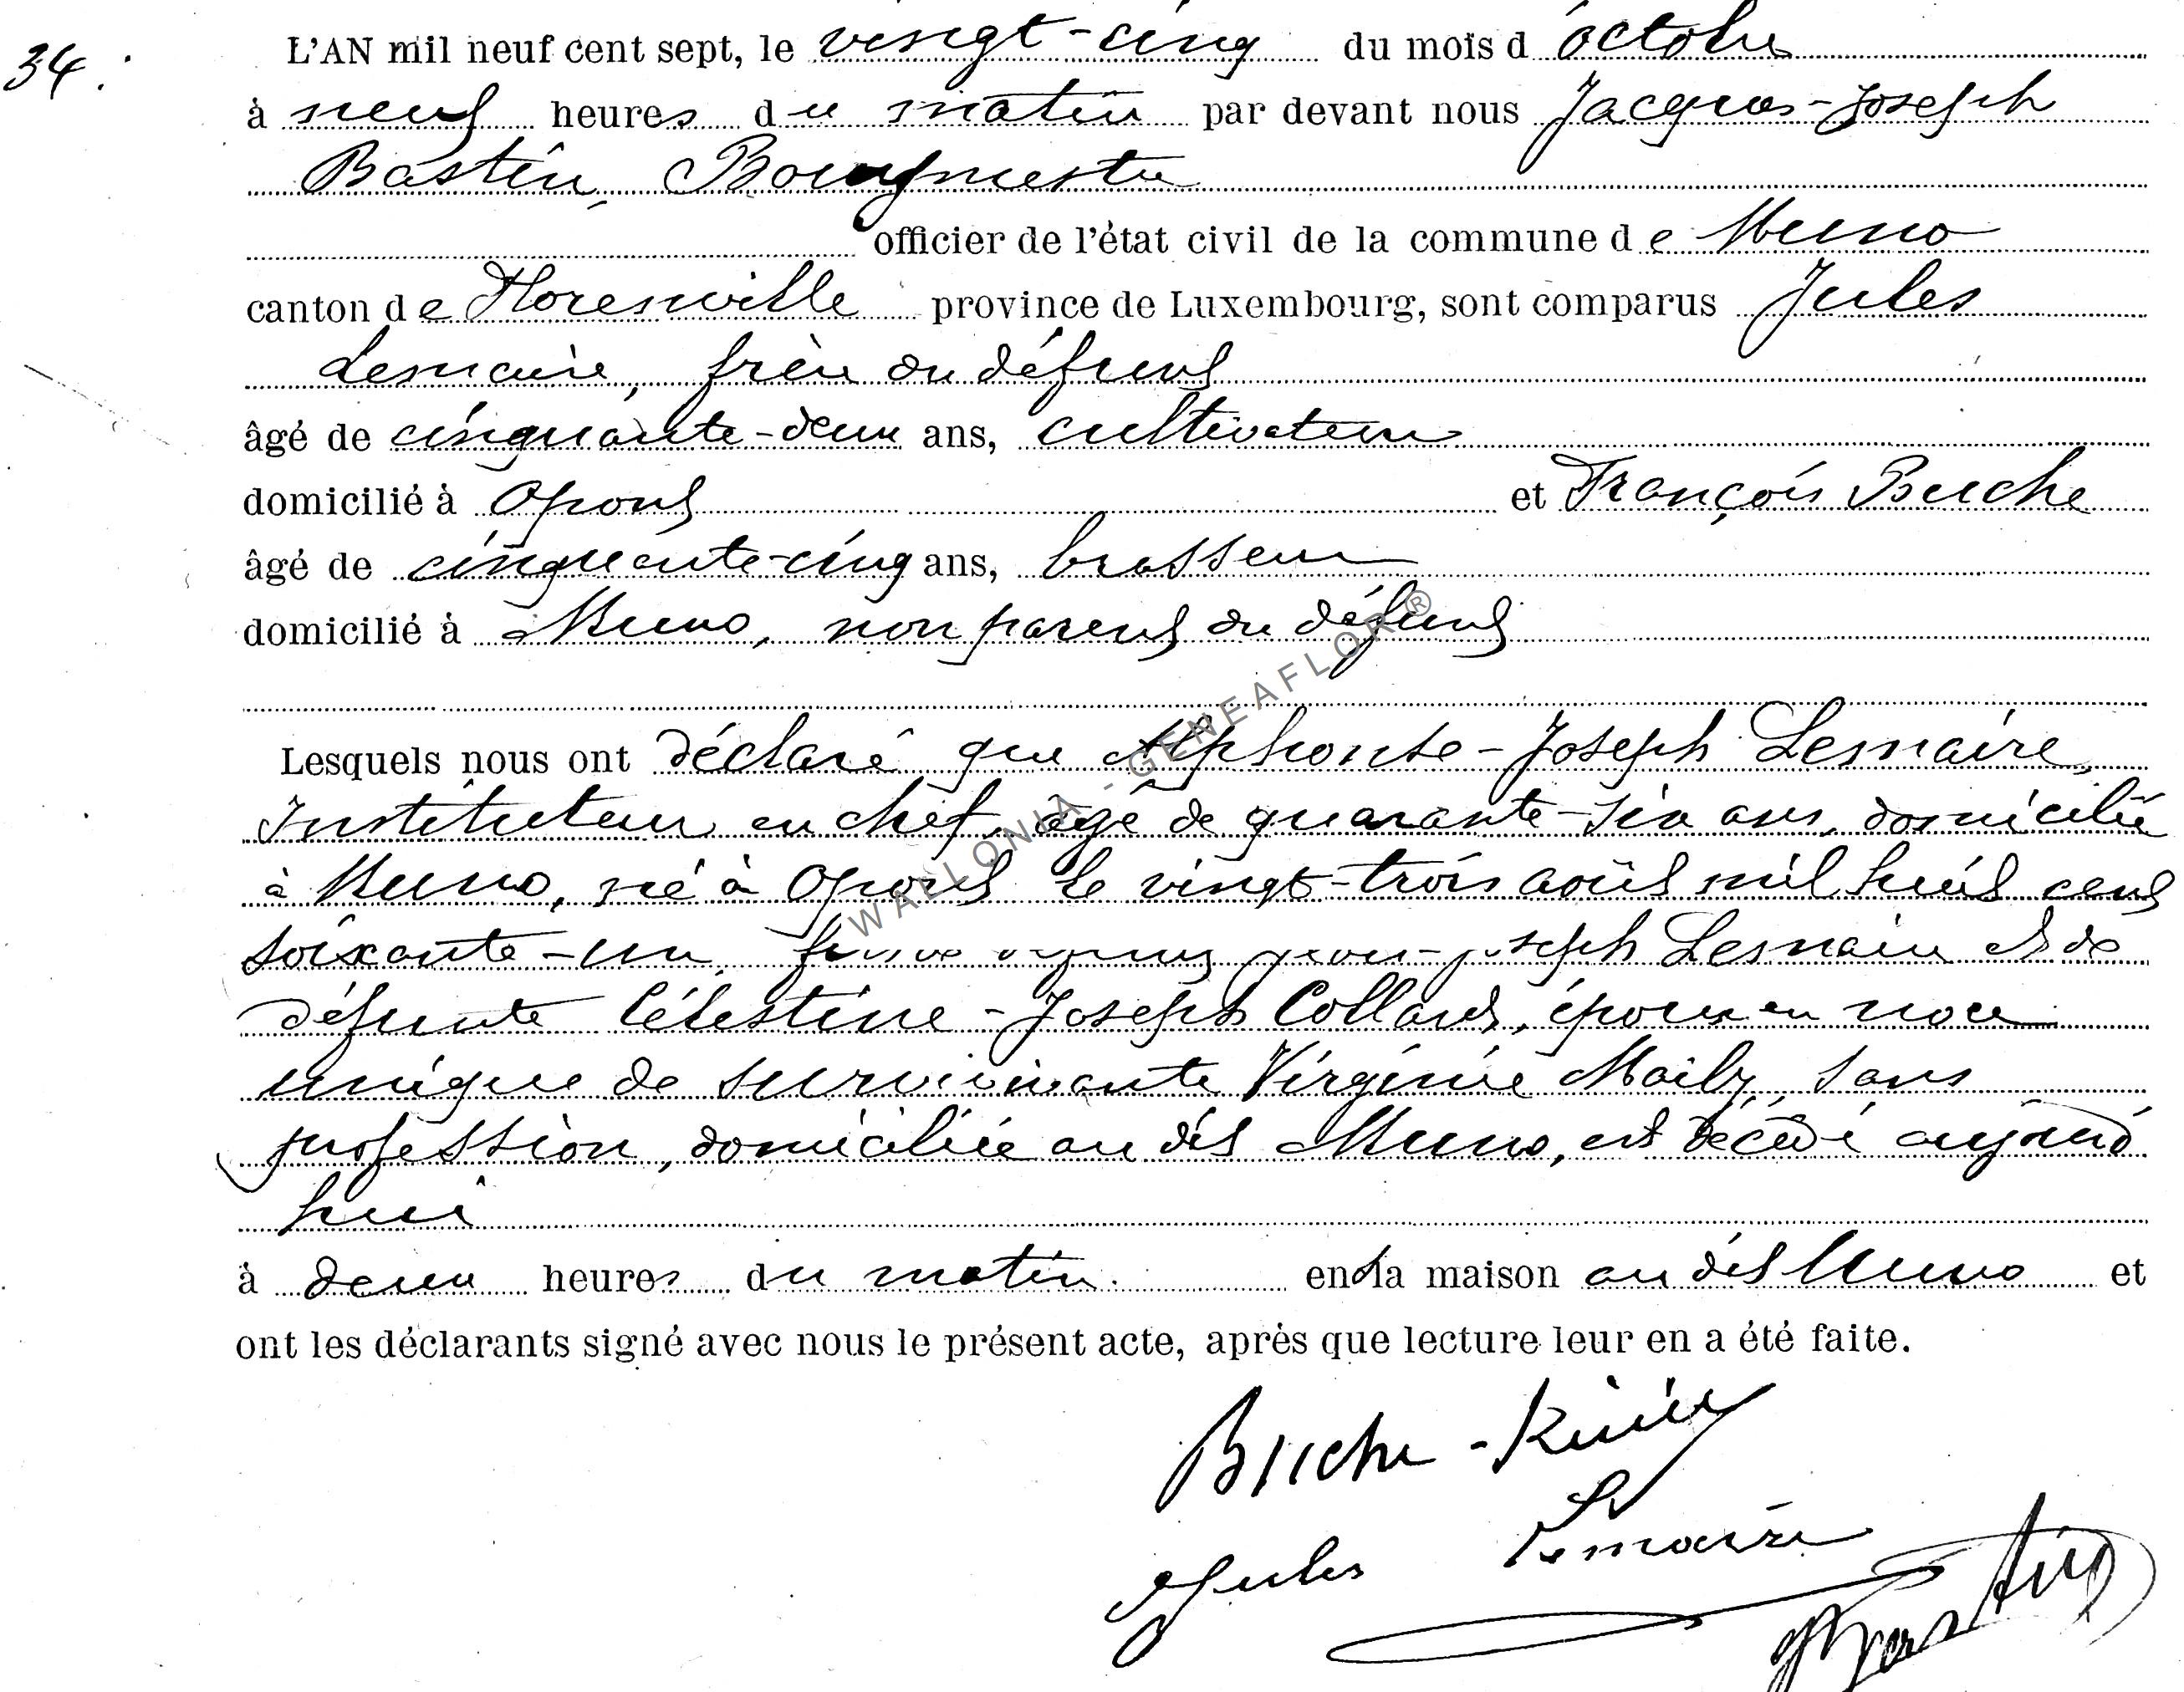 34.
L'AN mil neuf cent sept, le vingt-cinq du mois d'octobre
à neuf heures du matin par devant nous Jacques-Joseph
Bastin, Bourgmestre
officier de l'état civil de la commune de Muno
canton de Florenville province de Luxembourg, sont comparus Jules
Lemaire, frère du défunt
âgé de cinquante-deux ans, cultivateur
domicilié à Opont et François Buche
âgé de cinquante-cinq ans, brasseur
domicilié à Muno, non parent du défunt
Lesquels nous ont déclaré que Alphonse-Joseph Lemaire,
Instituteur en chef, âgé de quarante-six ans, domicilié
à Muno, né à Opont le vingt-trois août mil huit cent
soixante-un, Joseph Lemaire et de
défunte Célestine-Joseph Collard, époux en noce
unique de survivante Virginie Mailly, sans
profession, domiciliée au dit Muno, est décédé aujourd
hui
à deux heures du matin. en la maison au dit Muno et
ont les déclarants signé avec nous le présent acte, après que lecture leur en a été faite.
Buche
Jules Lemaire
Bastin
WALLONIA - GENEAFLOR ®